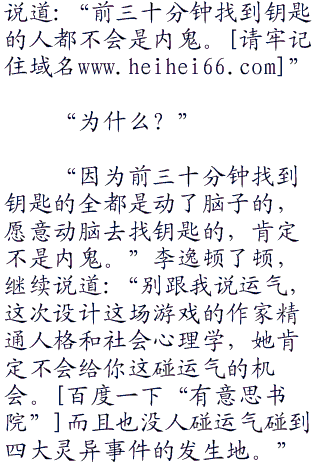 说道：“前三十分钟找到钥匙
的人都不会是内鬼。[请牢记
住域名www.heihei66.com]”
“为什么？”
“因为前三十分钟找到
钥匙的全都是动了脑子的，
愿意动脑去找钥匙的，肯定
不是内鬼。”李逸顿了顿，
继续说道：“别跟我说运气，
这次设计这场游戏的作家精
通人格和社会心理学，她肯
定不会给你这碰运气的机
会。[百度一下“有意思书
院”]而且也没人碰运气碰到
四大灵异事件的发生地。”